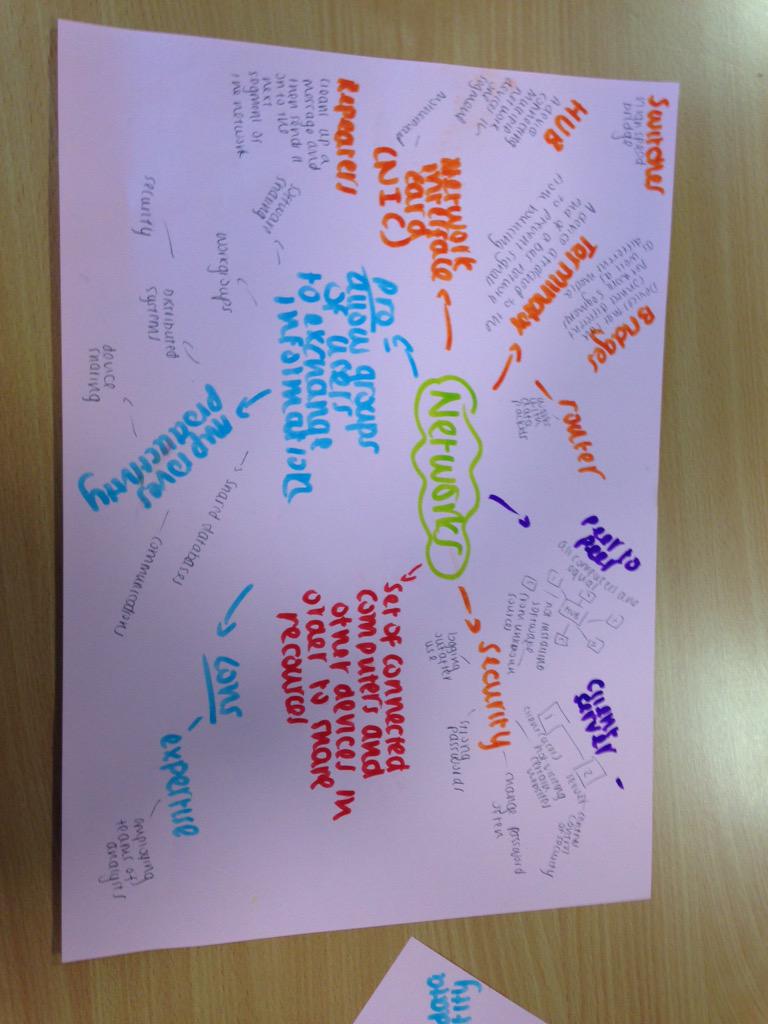 Networks
set of connected
computers and
other devices in
order to share
recources
pro =
allow groups
of users
to exchange
information
software
sharing
workgroups
improves
productivity
security
distributed
systems
device
sharing
shared databases
communications
cons
expertise
employing
teams of
analysts
security
logging
out after
use
strong
passwords
change password
often
Network
interface
card
(NIC)
Repeaters
cleans up a
message and
then sends it
on to the
next
segment of
the network
Terminator
A device attached to the
end of a bus network
to prevent signal
from bouncing
HUB
Switches
high speed
bridge
Bridges
router
peer to
peer
all computers are
equal
HUB
not installing
software
from unknown
sources
client
server
1
2
central
control
of security